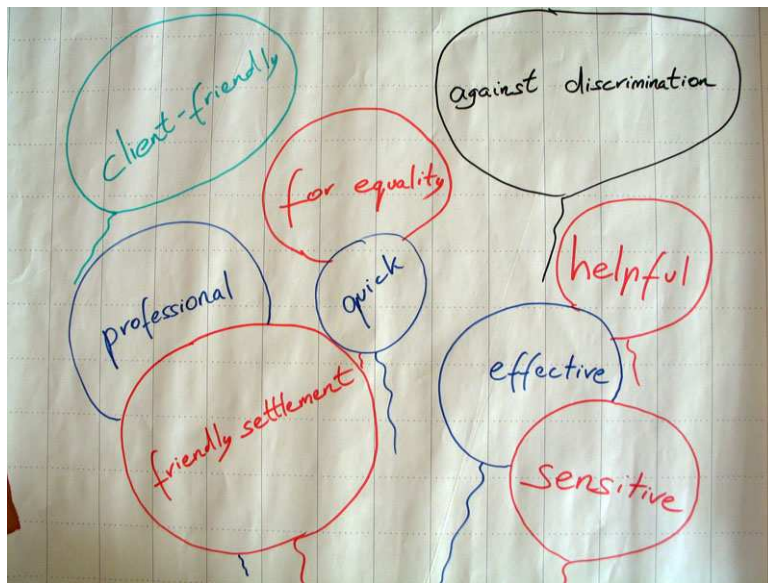 client-friendly
against discrimination
for equality
helpful
quick
professional
effective
friendly settlement
sensitive